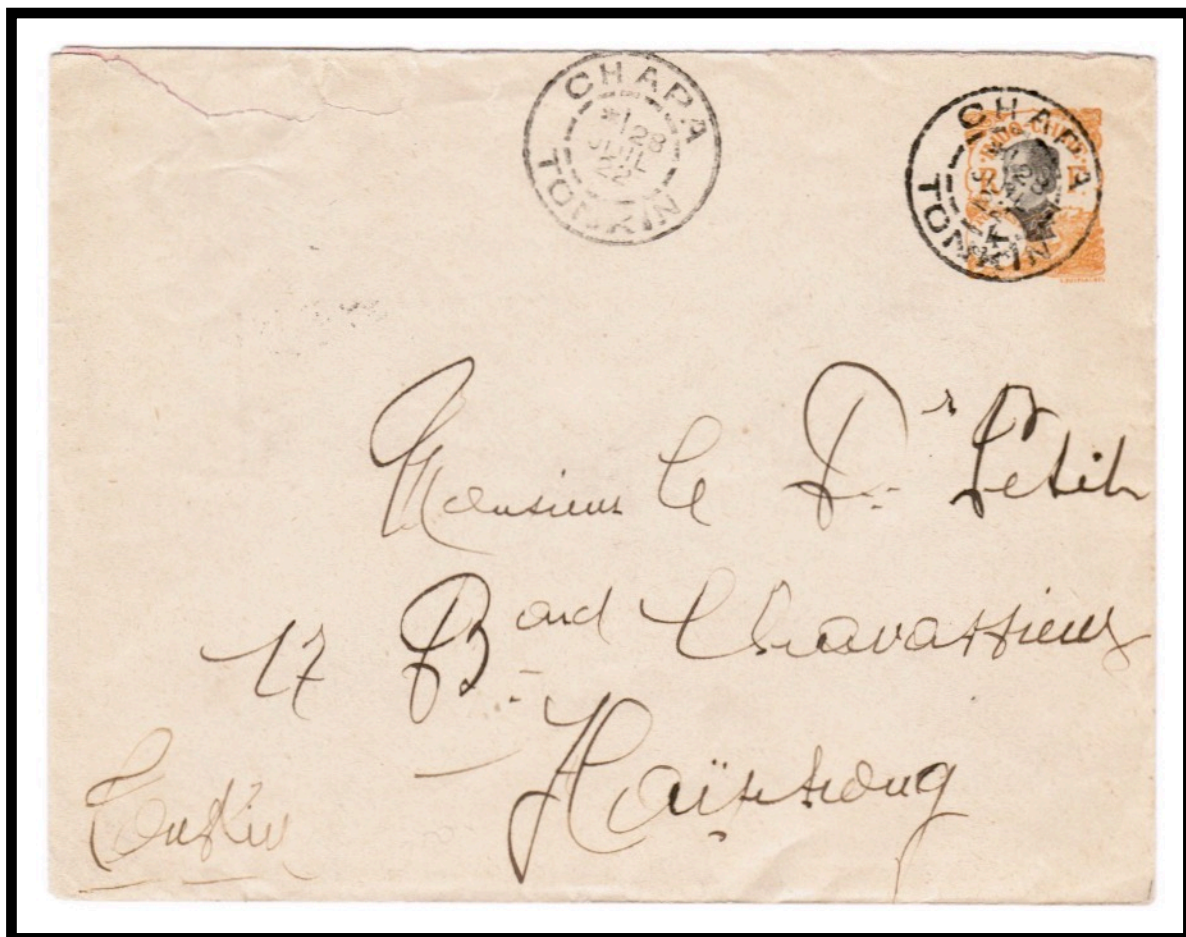 CHAPA
*1
28
JUIL
22
TONKIN
CHAPA
INDO-CHINE
R F
TONKIN
Monsieur le Dr Petit
17 Bard Chavassieux
Haïphong
Tonkin